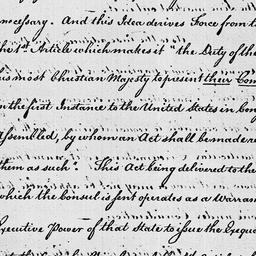 necessary. And this Idea derives Force from t
the 1st Article which makes it "the Duty of th
is most Christian Majesty to present their Con
n the first Instance to the United States in Con
Assembled, by whom an Act shall be made re
them as such". This Act being delivered to the
which the Consul is sent operates as a Warran
Executive Power of that State to issue the Exequ